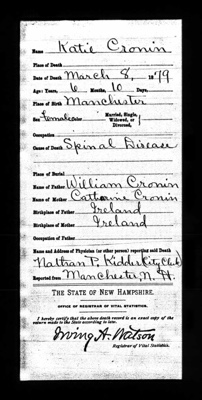 Name Katie Cronin
Place of Death
Date of Death March 8, 1879
Age: Years, 6 Months, 10 Days,
Place of Birth Manchester
Sex Female Color Married, Single, Widowed, or Divorced,
Occupation
Cause of Death Spinal Disease
Place of Burial
Name of Father William Cronin
Name of Mother Catherine Cronin
Birthplace of Father Ireland
Birthplace of Mother Ireland
Occupation of Father
Name and Address of Physician (or other person) reporting said Death
Nathan P. Kidder City Clerk
Reported from Manchester, N. H.
THE STATE OF NEW HAMPSHIRE.
OFFICE OF REGISTRAR OF VITAL STATISTICS.
I hereby certify that the above death record is an exact copy of the
return made to the State according to law.
Irving A. Watson
Registrar of Vital Statistics.